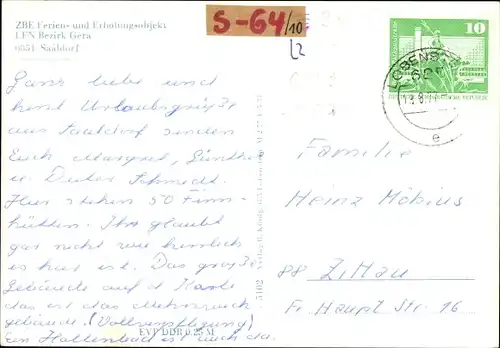 ZBE Ferien- und Erholungsobjekt
LFN Bezirk Gera
6851 Saaldorf
S-64/10
12
10
LOBENSTEIN
e
Ganz liebe und
herzl. Urlaubsgrüße
aus Saaldorf senden
Euch Margret, Günther
u. Dieter Schmidt.
Hier stehen 50 Finn-
hütten. Ihr glaubt
gar nicht wie herrlich
es hier ist. Das große
Gebäude auf d. Karte
das ist das Mehrzweck
gebäude (Vollverpflegung)
ein Hallenbad ist auch da.
EVP DDR 0.25 M
Familie
Heinz Möbius
88 Zittau
Fr. Haupt Str. 16